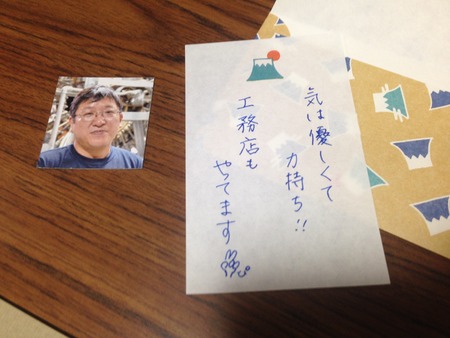 気は優しくて
力持ち!!
工務店も
やってます